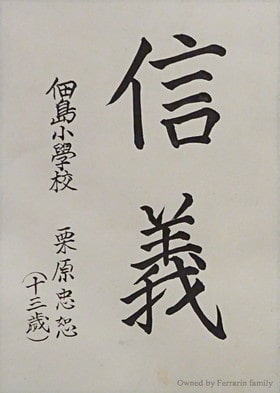 信義
佃島小學校
栗原忠恕
(十三歳)
Owned by Ferrarin family